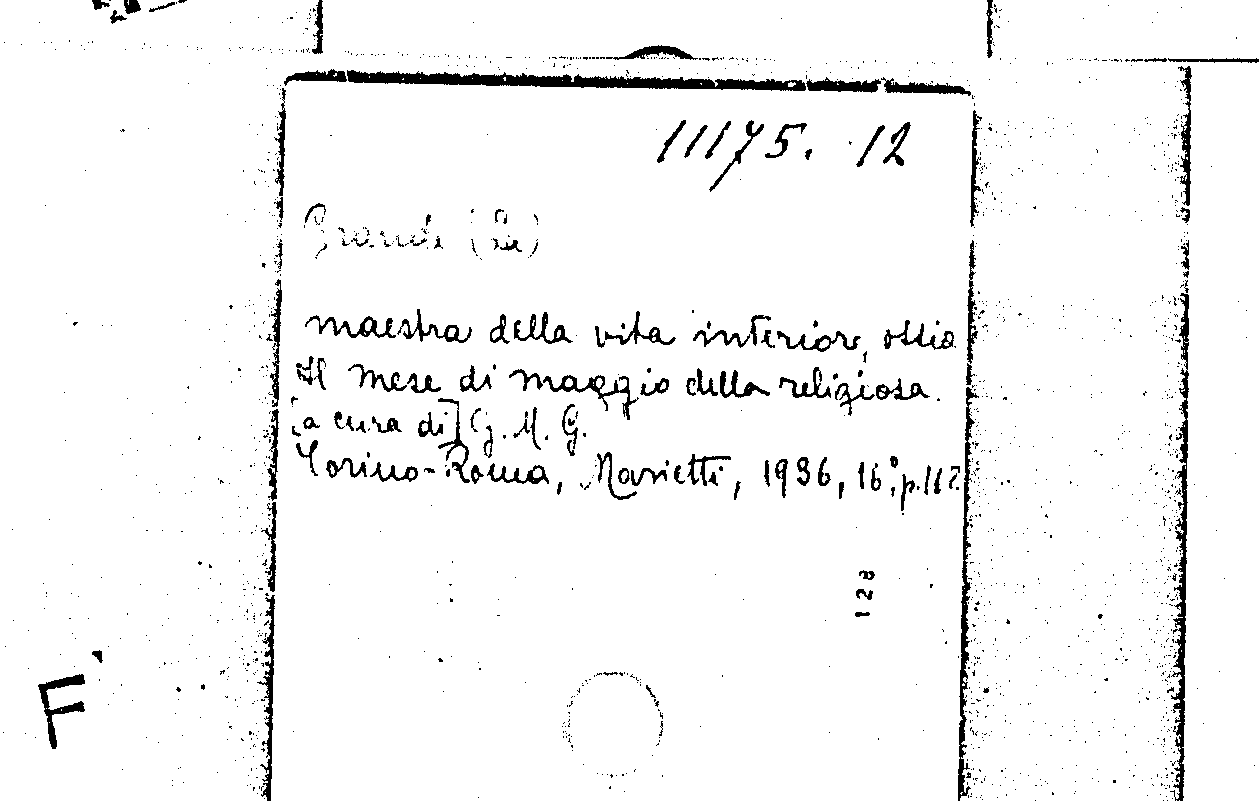 11175. 12
Grande (La)
maestra della vita interiore, ossia
Il mese di maggio della religiosa.
[a cura di] G. M. G.
Torino-Roma, Marietti, 1936, 16°, p.
128
F